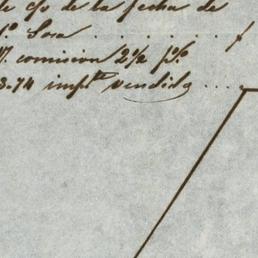 de c/o de la fecha de
Sosa . . . . . . . . . f
comision 2½ p%
3.74 impte vendida ...